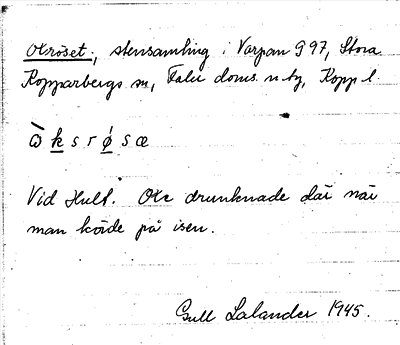 Oxröset, stensamling i Varpan G 97, Stora
Kopparbergs sn, Falu doms. n. tg, Kopp l.
ὼ k s r ǿ s æ
Vid Hult. Oxe drunknade där när
man körde på isen.
Gull Lalander 1945.